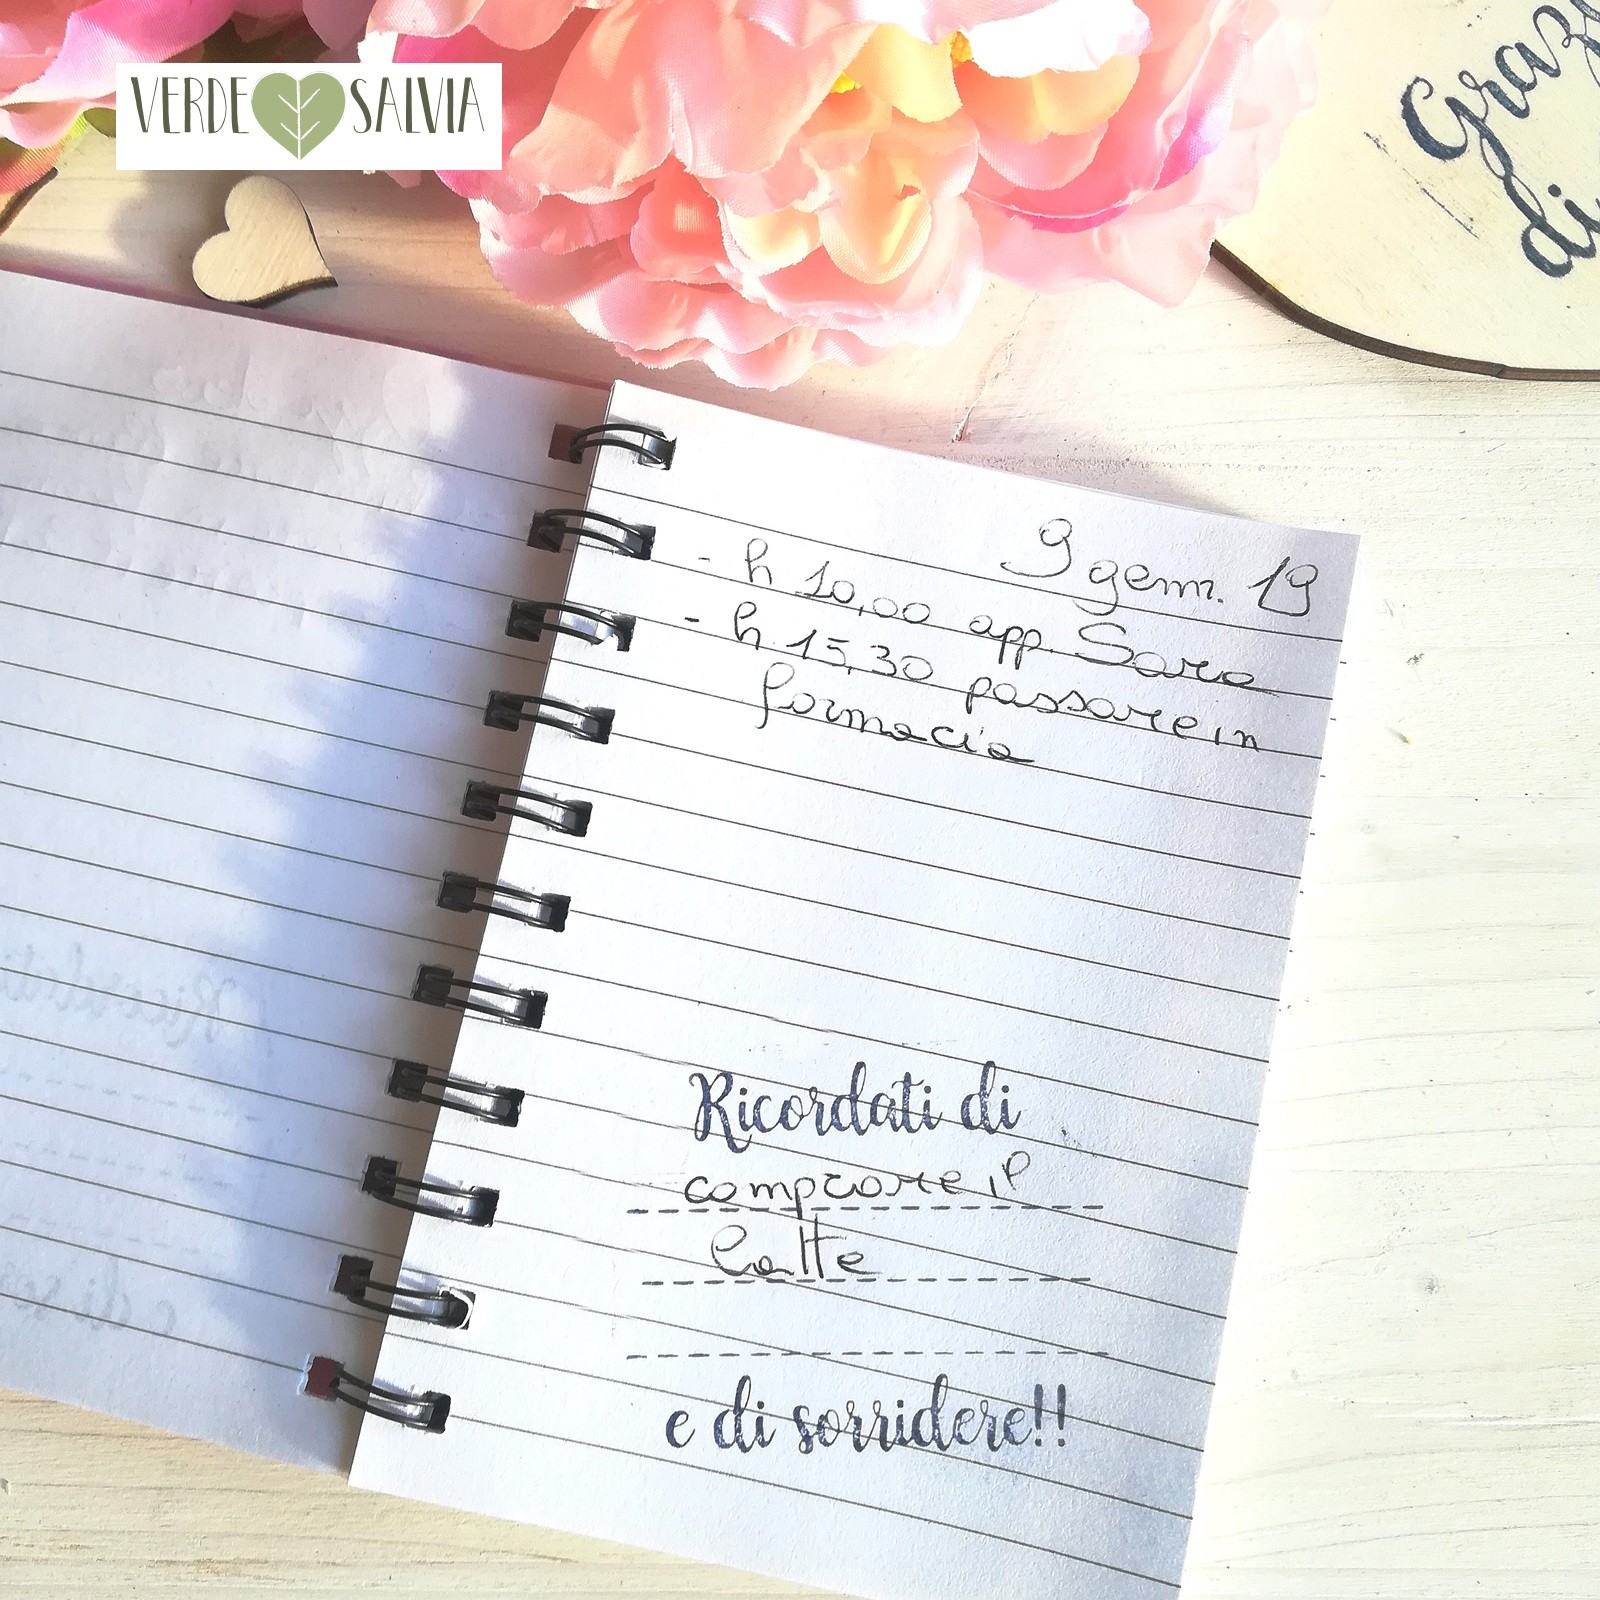 VERDE SALVIA
Graz
di
9 genn. 19
- h 10,00 app. Sara
- h 15,30 passare in
farmacia
Ricordati di
comprare il
latte
e di sorridere!!
Ricordati
e di sor